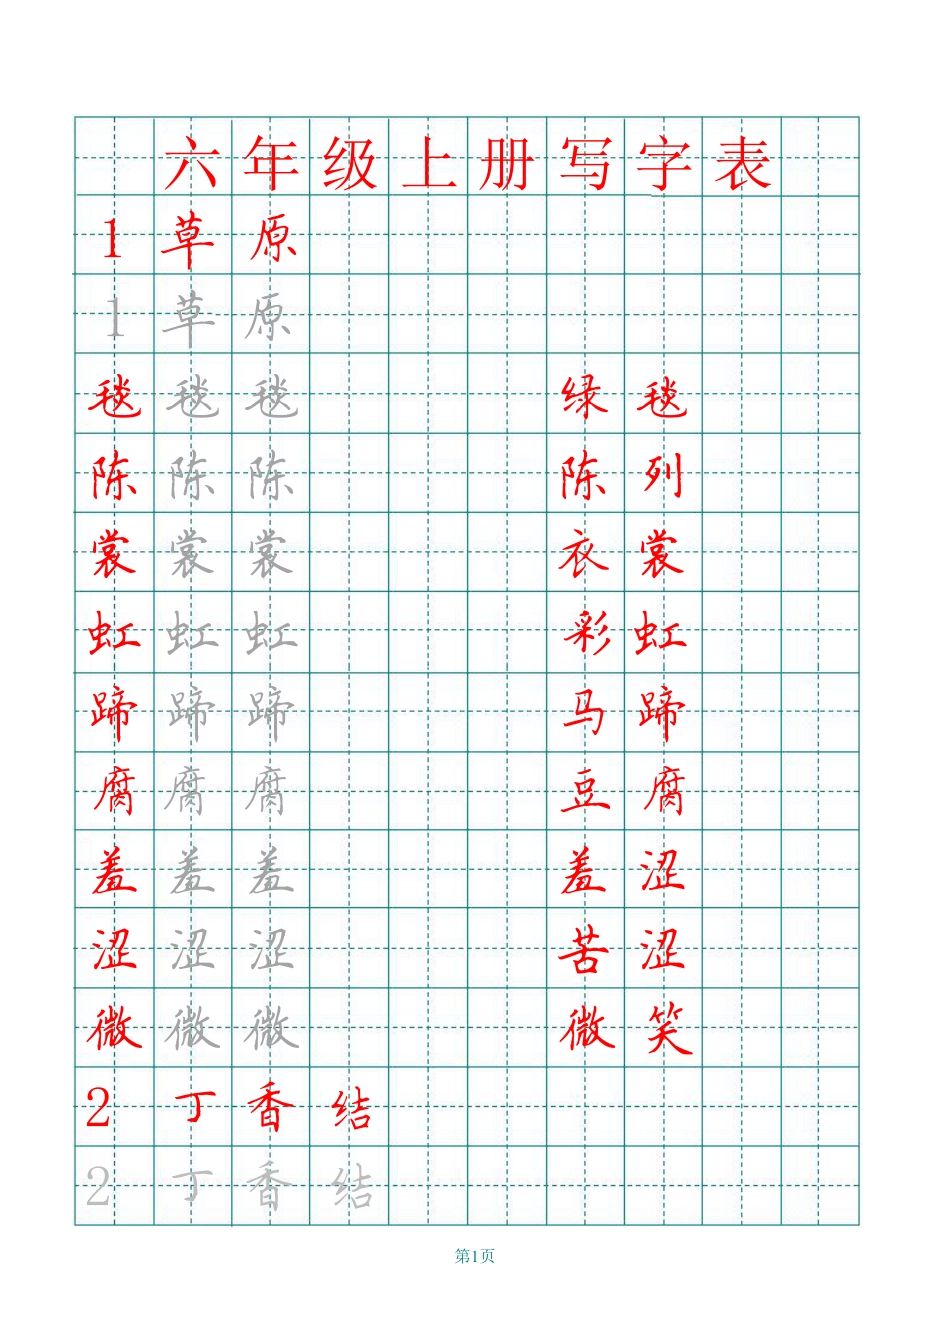 六年级上册写字表
1 草原
1 草原
毯 毯 毯 绿毯
陈 陈 陈 陈列
裳 裳 裳 衣裳
虹 虹 虹 彩虹
蹄 蹄 蹄 马蹄
腐 腐 腐 豆腐
羞 羞 羞 羞涩
涩 涩 涩 苦涩
微 微 微 微笑
2 丁香结
2 丁香结
第1页